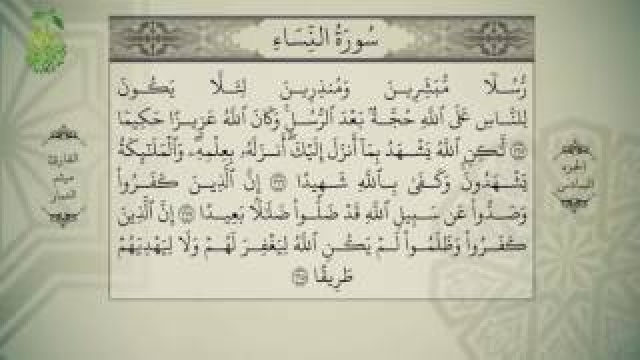 سُورَةُ النِّسَاءِ
رُّسُلًا مُّبَشِّرِينَ وَمُنذِرِينَ لِئَلَّا يَكُونَ
لِلنَّاسِ عَلَى اللَّهِ حُجَّةٌ بَعْدَ الرُّسُلِ وَكَانَ اللَّهُ عَزِيزًا حَكِيمًا
۝١٦٥ لَّٰكِنِ اللَّهُ يَشْهَدُ بِمَا أَنزَلَ إِلَيْكَ أَنزَلَهُ بِعِلْمِهِ وَالْمَلَائِكَةُ
يَشْهَدُونَ وَكَفَىٰ بِاللَّهِ شَهِيدًا ۝١٦٦ إِنَّ الَّذِينَ كَفَرُوا
وَصَدُّوا عَن سَبِيلِ اللَّهِ قَدْ ضَلُّوا ضَلَالًا بَعِيدًا ۝١٦٧ إِنَّ الَّذِينَ
كَفَرُوا وَظَلَمُوا لَمْ يَكُنِ اللَّهُ لِيَغْفِرَ لَهُمْ وَلَا لِيَهْدِيَهُمْ
طَرِيقًا ۝١٦٨
الجزء
السادس
القارئ
ميثم
التمار